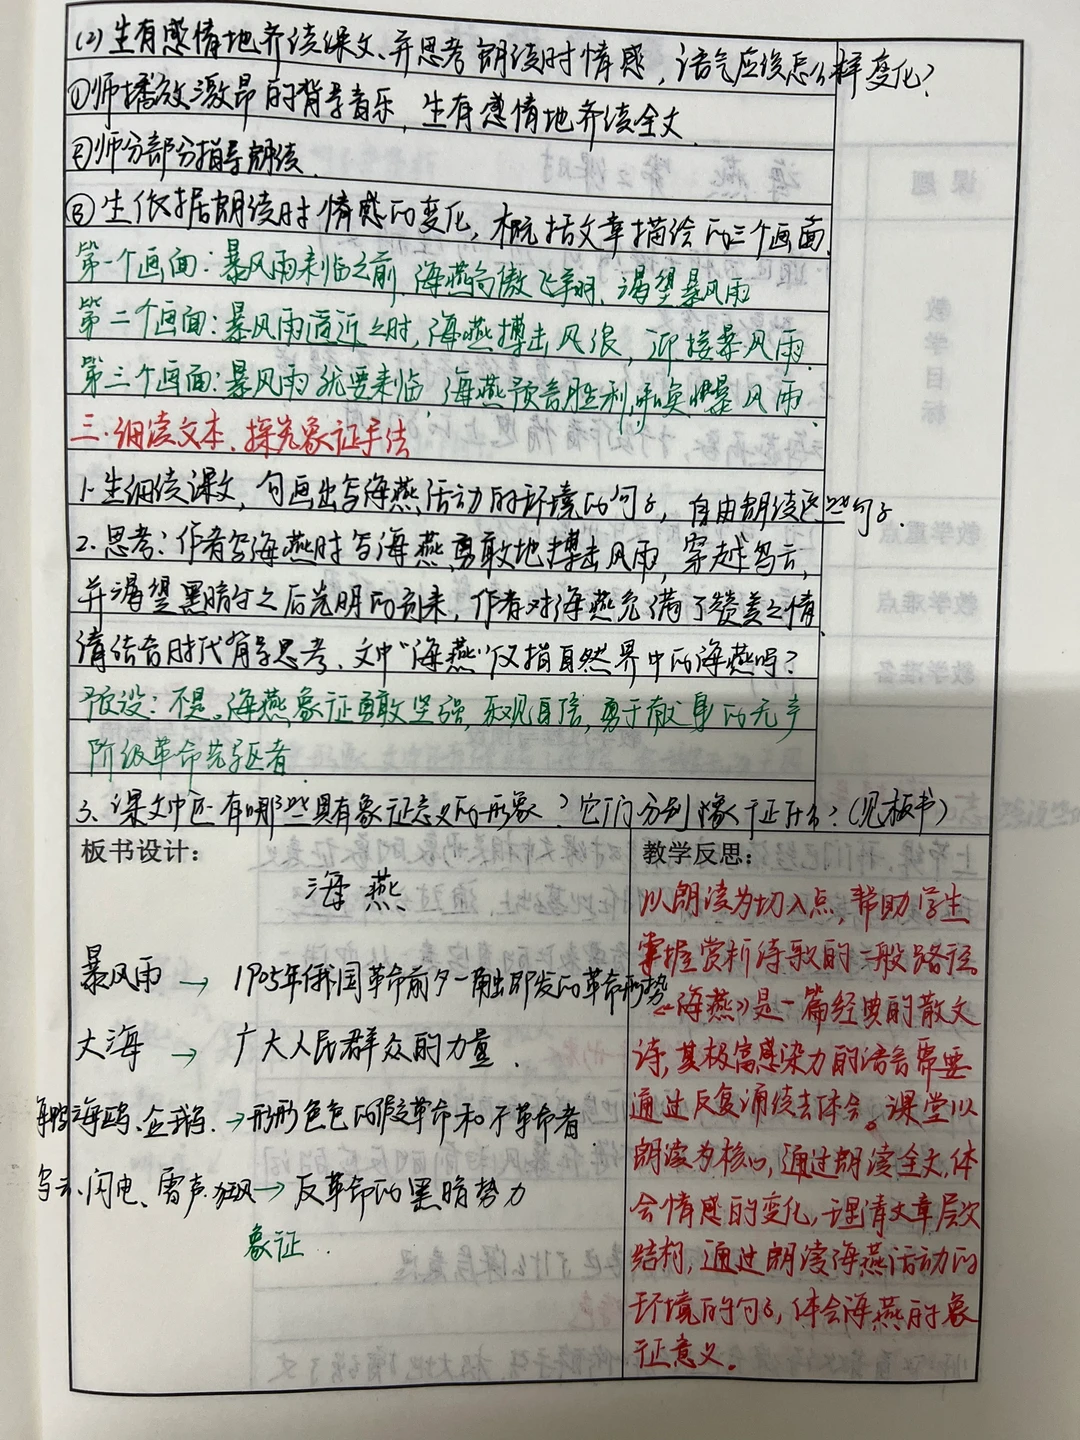 (2)生有感情地齐读课文、并思考朗读时情感，语气应该怎么样变化？
①师播放激昂的背景音乐，生有感情地齐读全文
②师分部分指导朗读
③生依据朗读时情感的变化，概括文章描绘的三个画面
第一个画面：暴风雨来临之前，海燕高傲飞翔，渴望暴风雨
第二个画面：暴风雨逼近之时，海燕搏击风浪，迎接暴风雨
第三个画面：暴风雨就要来临，海燕预言胜利，呼唤暴风雨
三、细读文本、探究象征手法
1.生细读课文，勾画出写海燕活动的环境的句子，自由朗读这些句子.
2.思考：作者写海燕时写海燕勇敢地搏击风雨，穿越乌云，
并渴望黑暗之后光明的到来，作者对海燕充满了赞美之情
请结合时代背景思考、文中“海燕”仅指自然界中的海燕吗？
预设：不是，海燕象征勇敢坚强，乐观自信，勇于献身的无产
阶级革命先驱者
3、课文中还有哪些具有象征意义的形象？它们分别像征什么？(见板书)
板书设计：
海燕
暴风雨 → 1905年俄国革命前夕一触即发的革命形势
大海 → 广大人民群众的力量.
海鸭、海鸥、企鹅. → 形形色色的假革命和不革命者
乌云、闪电、雷声、狂风 → 反革命的黑暗势力
象征
教学反思：
以朗读为切入点，帮助学生
掌握赏析诗歌的一般路径
《海燕》是一篇经典的散文
诗，其极富感染力的语言需要
通过反复诵读去体会。课堂以
朗读为核心，通过朗读全文，体
会情感的变化，理清文章层次
结构，通过朗读海燕活动的
环境的句子，体会海燕的象
征意义。